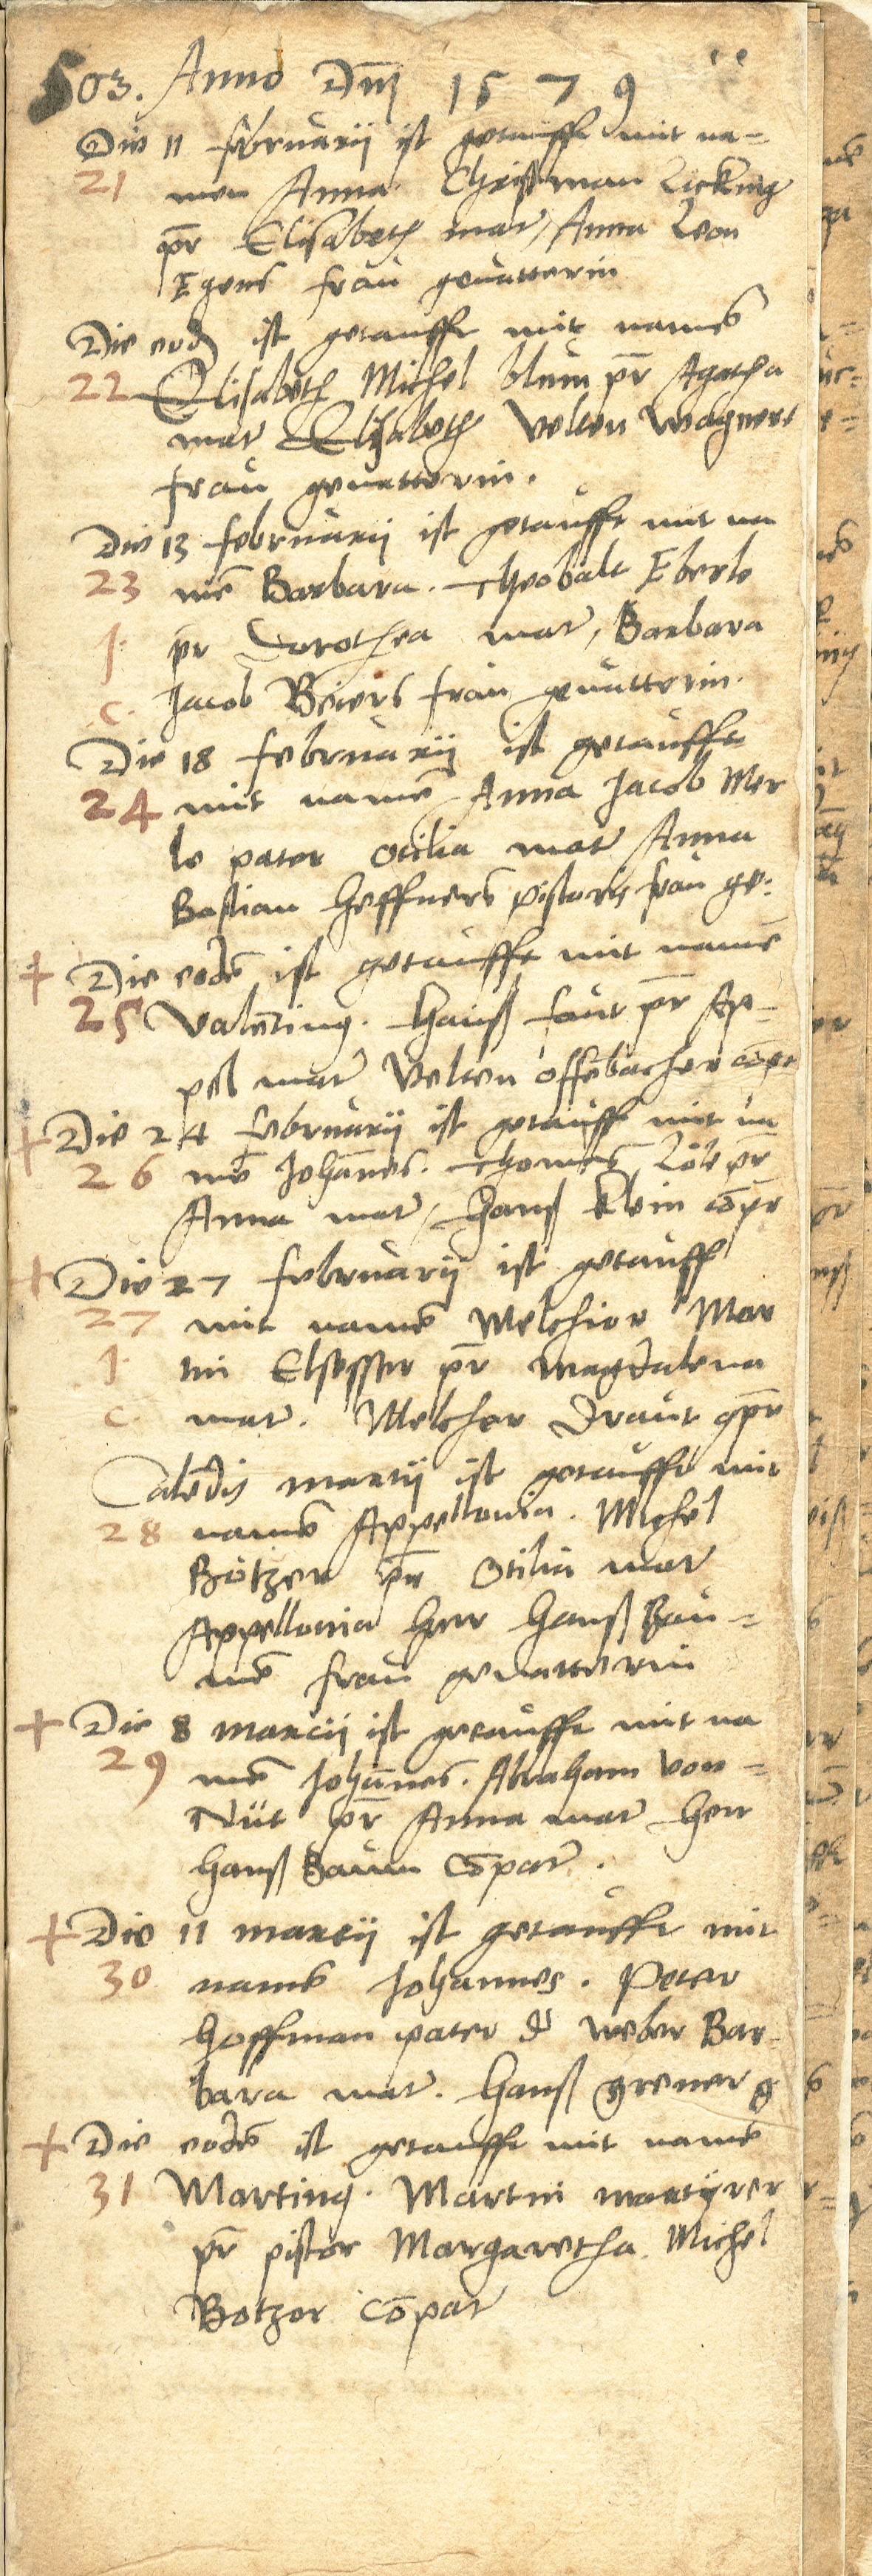 503. Anno Dm̄ 1579
Die 11 februarij ist getaufft mit na=
21 men Anna. Christman Licking
pr̄ Elisabeth mat̄, Anna Leon
Egens frau gevatterin
Die eod ist getaufft mit namē
22 Elisabeth Michel blum pr̄ Agatha
mat̄ Elisabeth Velten Wagners
frau gevatterin.
Die 13 februarij ist getaufft mit na
23 mē Barbara. Theobalt Eberle
j. pr̄ Dorothea mat̄, Barbara
c. Jacob Beiers frau gevatterin.
Die 18 februarij ist getaufft
24 mit namē Anna Jacob Mer
le pater Otilia mat̄ Anna
Bastian Heffners pistoris frau ge:
+ Die eodē ist getaufft mit namē
25 Valēting. Hanß faut pr̄ Ap=
pel mat̄ Velten offēbacher cōpr
+ Die 24 februarij ist getauff mit na
26 mē Johānes. Thomas Löle pr̄
Anna mat̄, Hanß klein cōpr
+ Die 27 februarij ist getauff
27 mit namē Melchior Mar
j. tin Elsesser pr̄ Magdalena
c. mat̄. Melcher Draut cpr̄
Calēdis martij ist getaufft mit
28 namē Appellonia. Michel
Botzer pr̄ Otilia mat̄
Appellonia herr Hanß Bau=
mē frau gevatterin
+ Die 8 marcij ist getaufft mit na
29 mē Johānes. Abraham von=
Nüt pr̄ Anna mat̄ Herr
Hanß Baum Cōpat̄.
+ Die 11 martij ist getaufft mit
30 namē Johannes. Peter
Hoffman pater d weber Bar=
bara mat̄. Hanß grener g
+ Die eodē ist getaufft mit namē
31 Marting. Martin martyrer
pr̄ pistor Margaretha. Michel
Botzer Cōpat̄